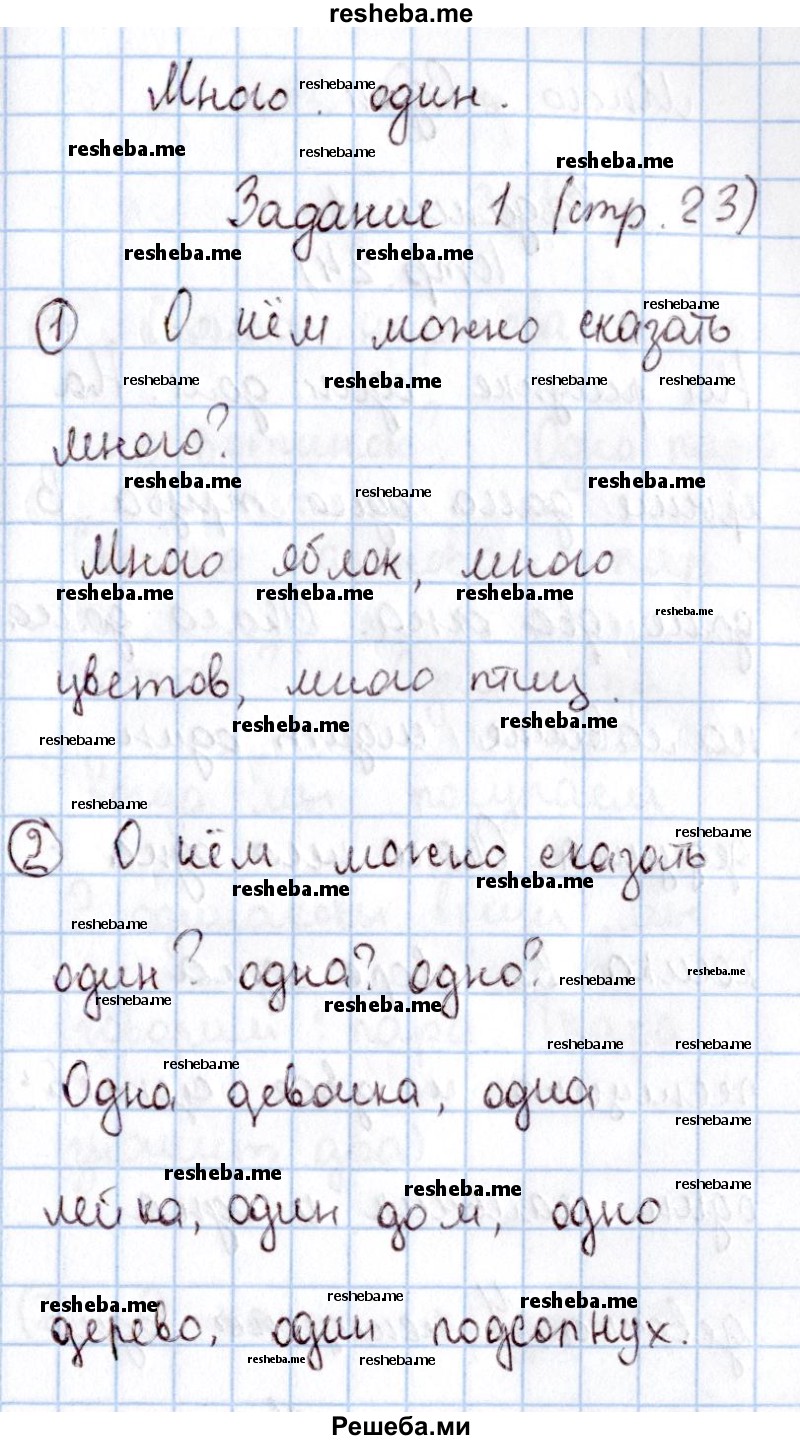 resheba.me
Много. один.
Задание 1 (стр. 23)
1 О чём можно сказать
много?
Много яблок, много
цветов, много птиц.
2 О чём можно сказать
один? одна? одно?
Одна девочка, одна
лейка, один дом, одно
дерево, один подсолнух.
Решеба.ми